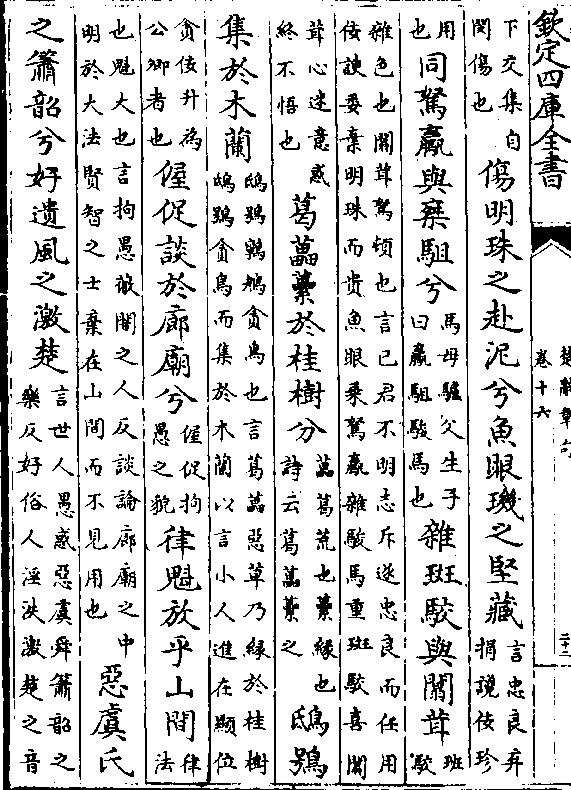 欽定四庫全書
楚辭章句
卷十六
下交集自
閔傷也
傷明珠之赴泥兮魚眼璣之堅藏
言忠良弃
捐讒佞珍
用
也
同駑驘與椉駔兮
馬母驢父生子
曰驘駔駿馬也
雜班駮與闒茸
班
駮
雜色也闒茸駑頓也言己君不明志斥逐忠良而任用
佞諛委棄明珠而貴魚眼乘駑驘雜駿馬重班駮喜闒
茸心迷意惑
終不悟也
葛藟虆於桂樹兮
藟葛荒也虆緣也
詩云葛藟虆之
鴟鴞
集於木蘭
鴟鴞鸋鴂貪鳥也言葛藟惡草乃緣於桂樹
鴟鴞貪鳥而集於木蘭以言小人進在顯位
貪佞升為
公卿者也
偓促談於廊廟兮
偓促拘
愚之貌
律魁放乎山間
律
法
也魁大也言拘愚蔽闇之人反談論廊廟之中
明於大法賢智之士棄在山間而不見用也
惡虞氏
之簫韶兮好遺風之激楚
言世人愚惑惡虞舜簫韶之
樂反好俗人淫泆激楚之音